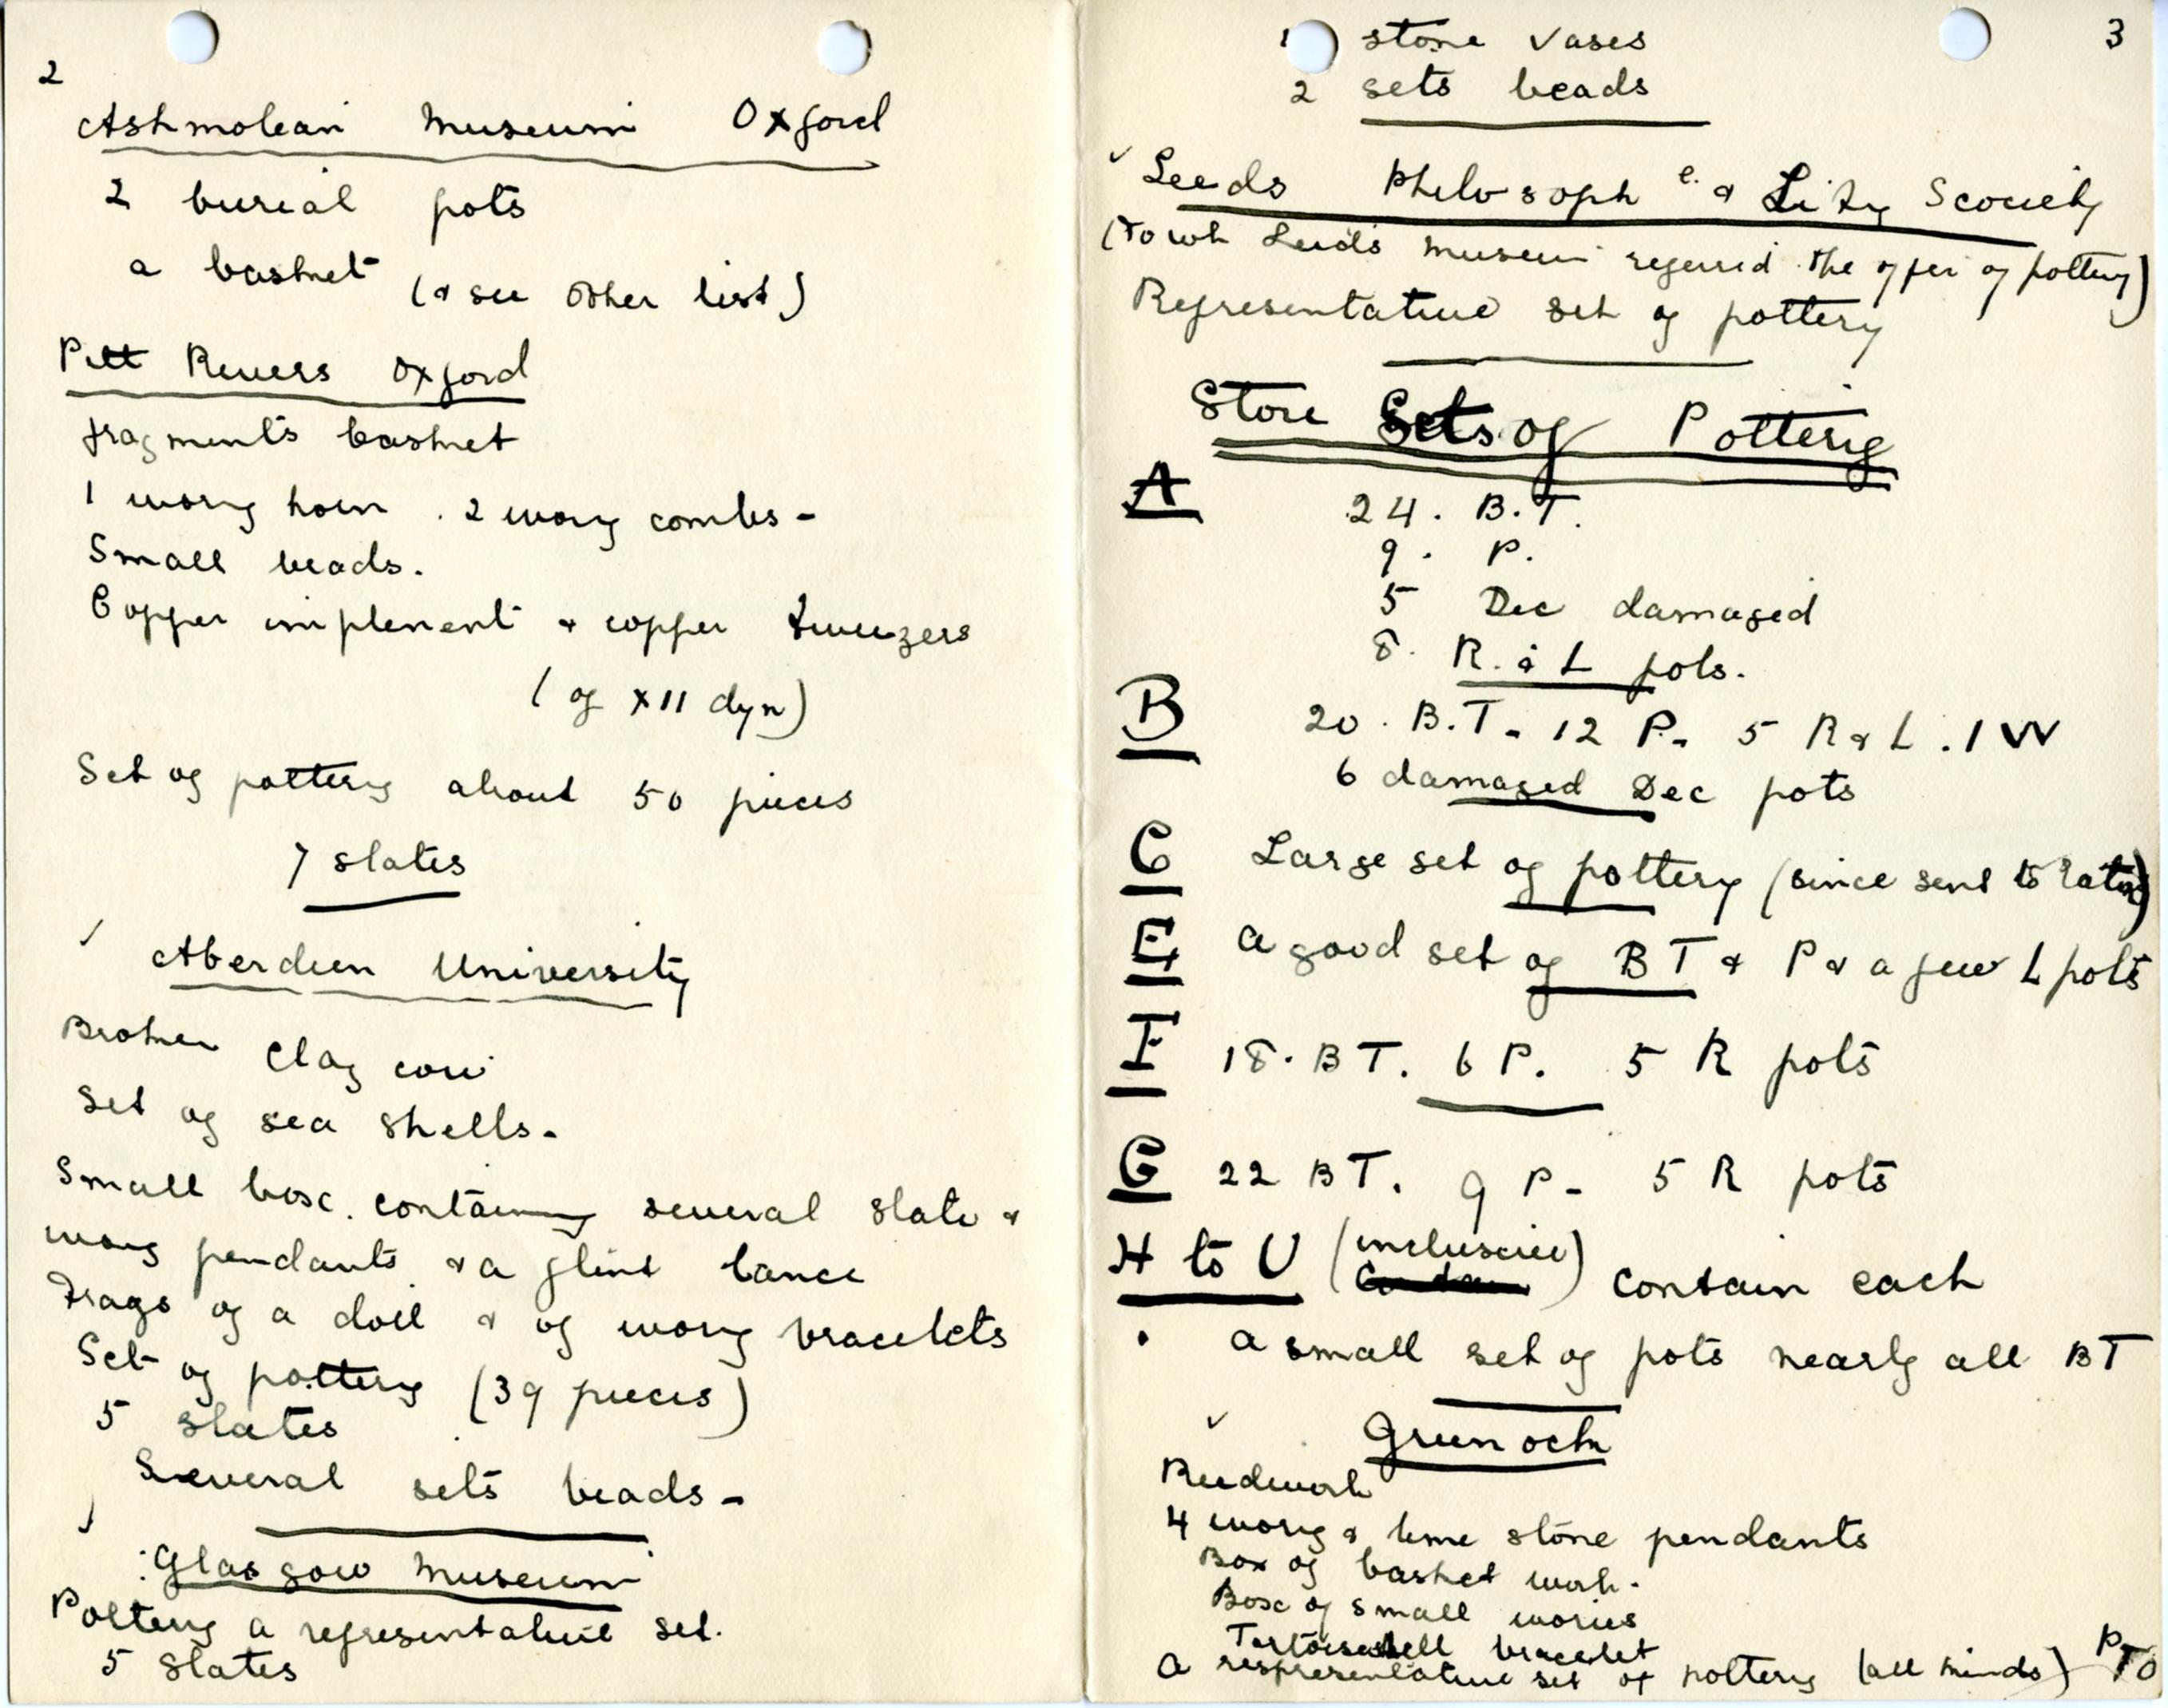 2
Ashmolean Museum Oxford
2 burial pots
a basket (& see other list)
Pitt Rivers Oxford
fragments basket
1 ivory horn . 2 ivory combs -
Small beads.
Copper implement & copper tweezers
( of XII dyn)
Set of pottery about 50 pieces
7 slates
✓ Aberdeen University
Broken clay cow
Set of sea shells -
Small box. containing several slate &
ivory pendants & a flint lance
Frags of a doll & of ivory bracelets
Set of pottery (39 pieces)
5 slates
Several sets beads -
✓ Glasgow Museum
Pottery a representative set.
5 slates
3
stone vases
2 sets beads
✓ Leeds Philosoph e. & Lity Scociety
(to wh Leeds museum referred the offer of pottery)
Representative set of pottery
Store Sets of Pottery
A 24. B.T.
9. P.
5 Dec damaged
8. R. & L pots.
B 20. B.T. 12 P. 5 R & L. 1 W
6 damaged Dec pots
C Large set of pottery (since sent to
E a good set of BT & P & a few L pots
F 18. BT. 6 P. 5 R pots
G 22 BT. 9 P - 5 R pots
H to U (inclusive) contain each
a small set of pots nearly all BT
✓ Greenock
Reedwork
4 ivory & lime stone pendants
Box of basket work.
Box of small ivories
Tortoiseshell bracelet
a respresentative set of pottery (all kinds) PTO